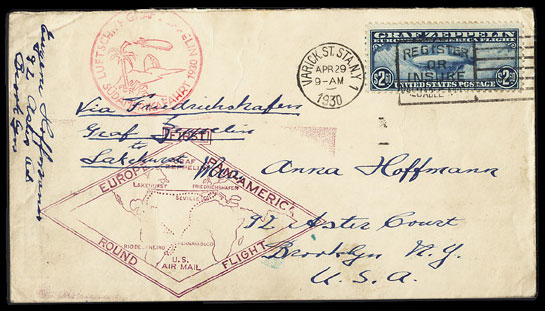 LUFTSCHIFF GRAF ZEPPELIN
SÜDAMERIKAFAHRT 1930
VARICK ST. STA. N.Y. 1
APR 29
9-AM
1930
GRAF ZEPPELIN
EUROPE PAN-AMERICA FLIGHT
REGISTER
OR
INSURE
VALUABLE
$2.60
UNITED STATES POSTAGE
Hoffmann
92 Aster Ct.
Brooklyn
Via Friedrichshafen
Graf Zeppelin
to
Lakehurst
Miss Anna Hoffmann
92 Aster Court
Brooklyn N.Y.
U.S.A.
EUROPE PAN AMERICA
ROUND FLIGHT
GRAF
ZEPPELIN
LAKEHURST
FRIEDRICHSHAFEN
SEVILLE
PERNAMBUCO
RIO DE JANEIRO
U.S.
AIR MAIL